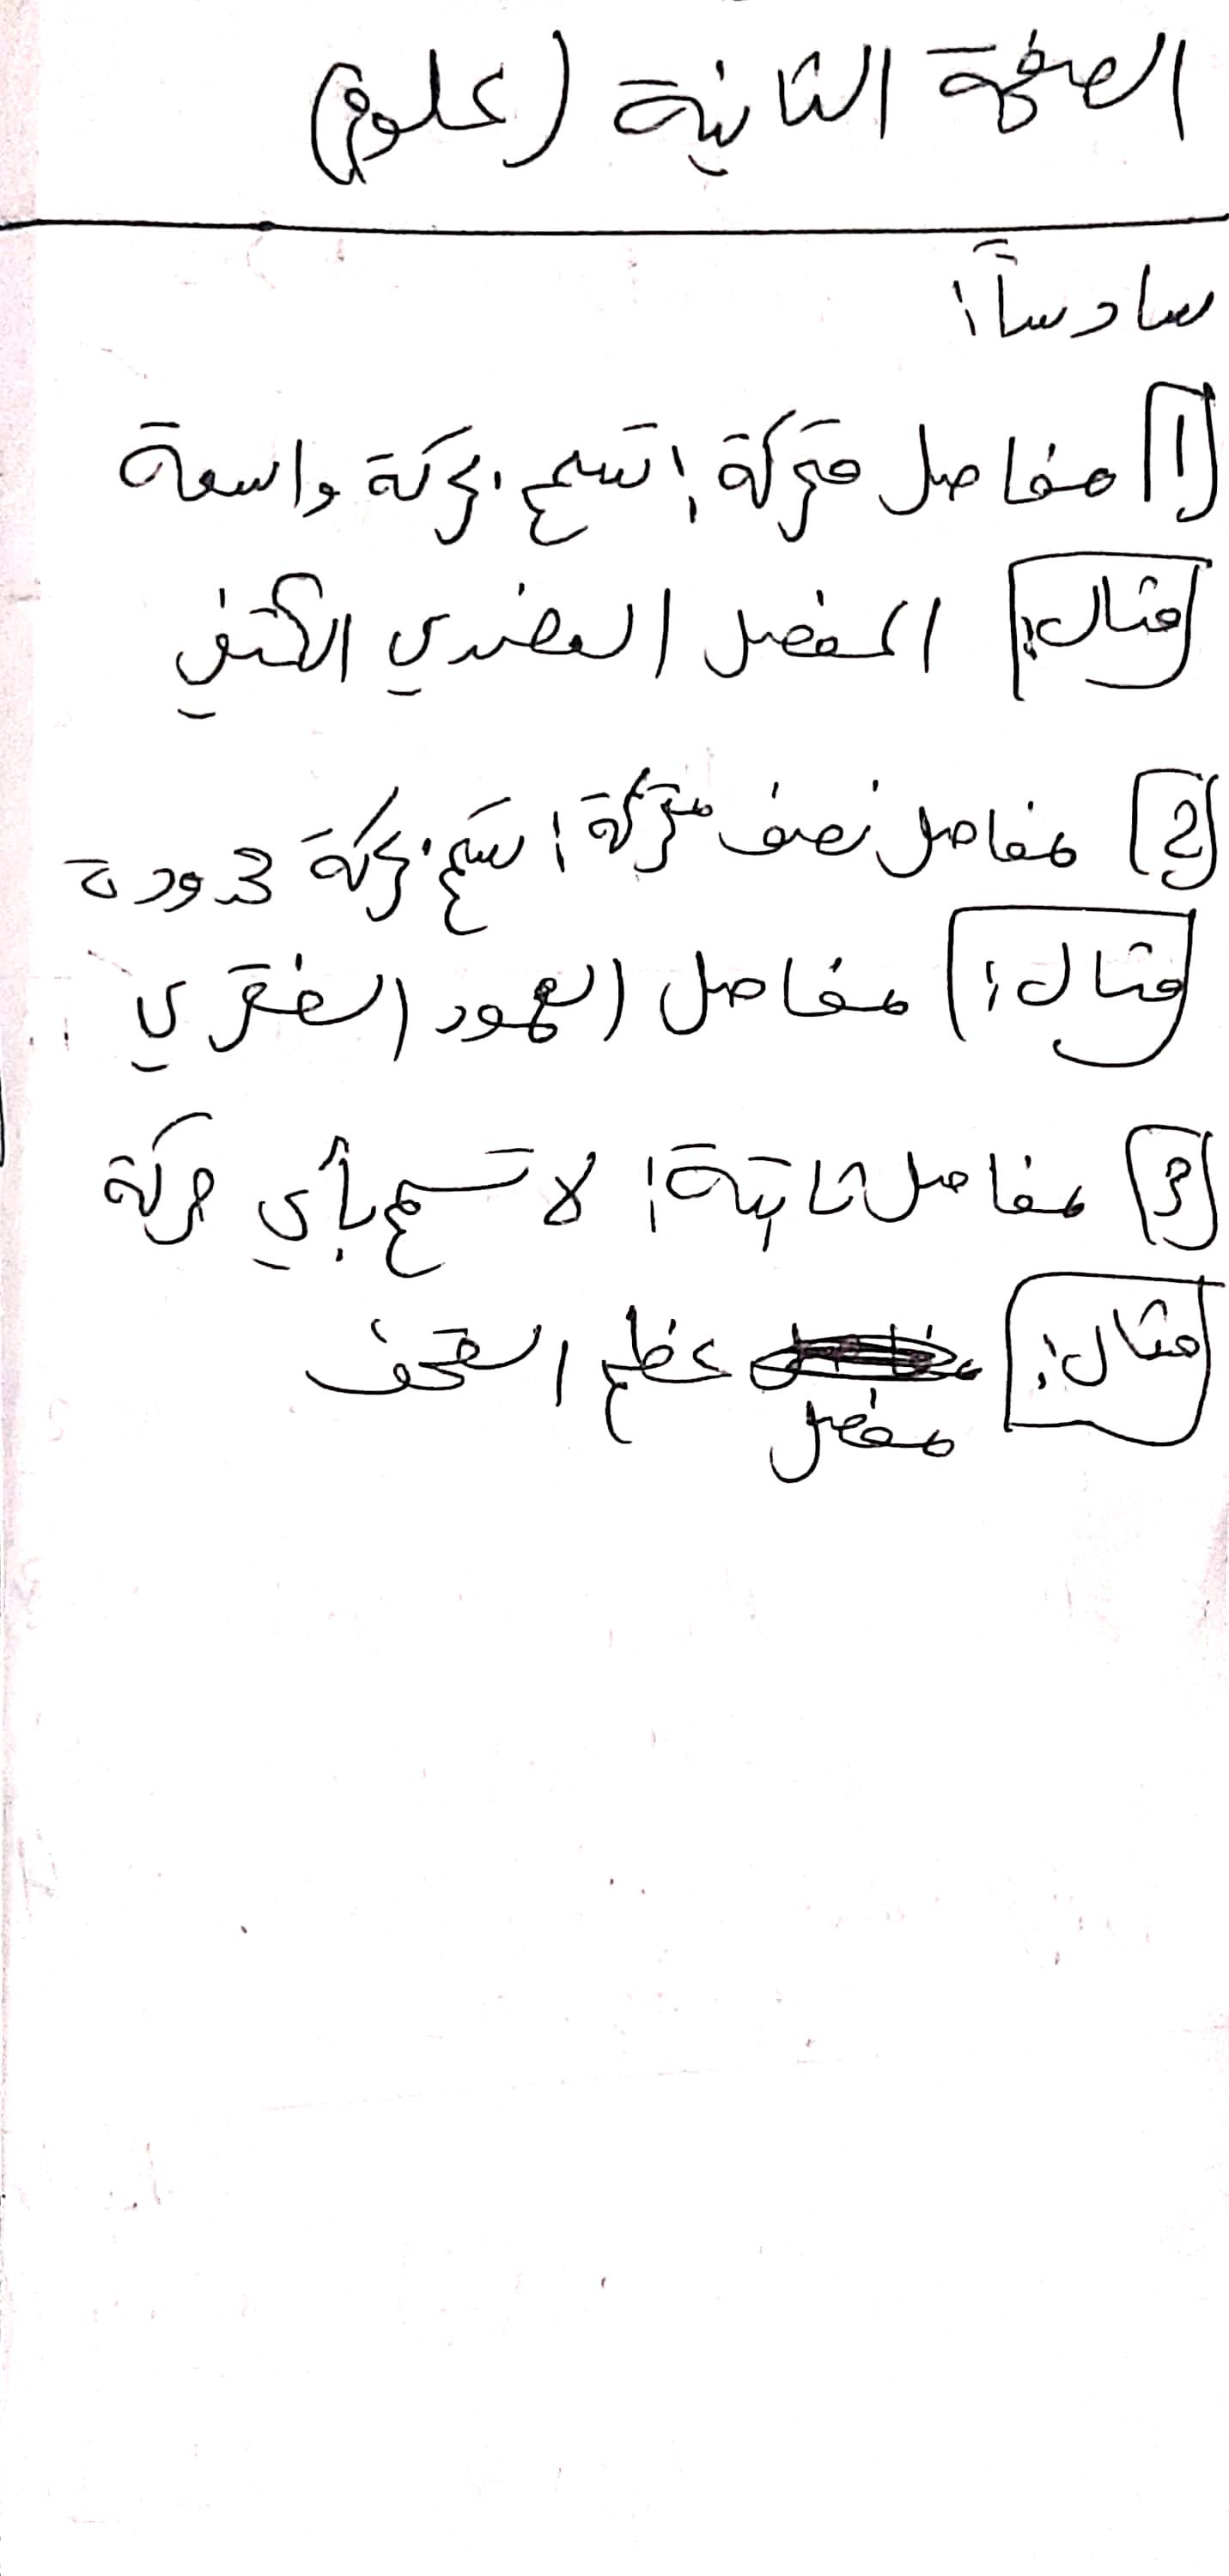 الصفحة الثانية (علوم)
سادساً:
1 مفاصل متحركة: تسمح بحركة واسعة
مثال: المفصل العضدي الكتفي
2 مفاصل نصف متحركة: تسمح بحركة محدودة
مثال: مفاصل العمود الفقري
3 مفاصل ثابتة: لا تسمح بأي حركة
مثال: عظم القحف
مفصل